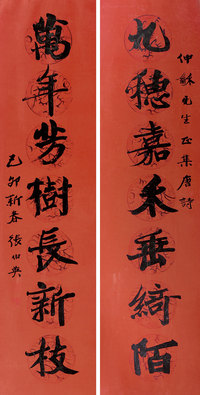 仲穌先生正集唐詩
九穗嘉禾垂綺陌
萬年芳樹長新枝
己卯新春張伯英